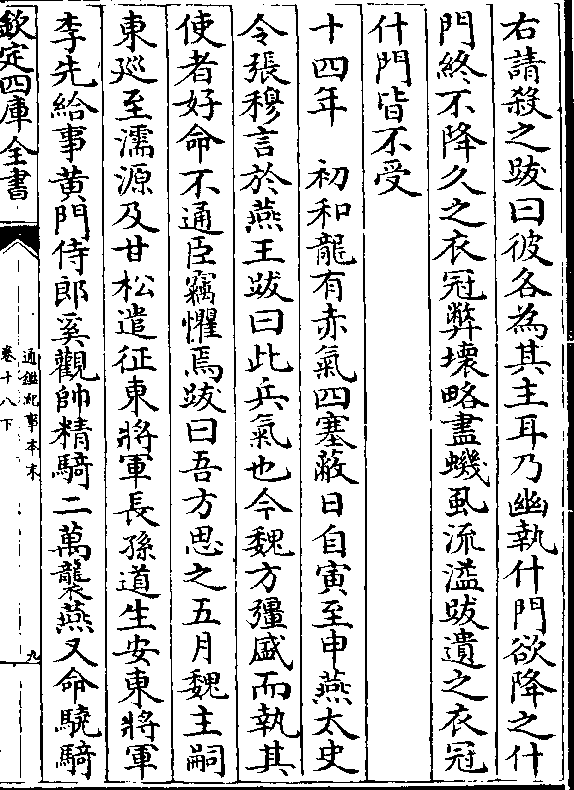 右請殺之跋曰彼各為其主耳乃幽執什門欲降之什
門終不降久之衣冠弊壊略盡蟣虱流溢跋遺之衣冠
什門皆不受
十四年　初和龍有赤氣四塞蔽日自寅至申燕太史
令張穆言於燕王跋曰此兵氣也今魏方彊盛而執其
使者好命不通臣竊懼焉跋曰吾方思之五月魏主嗣
東廵至濡源及甘松遣征東將軍長孫道生安東將軍
李先給事黄門侍郎奚觀帥精騎二萬襲燕又命驍騎
欽定四庫全書
通鑑紀事本末
卷十八下
九